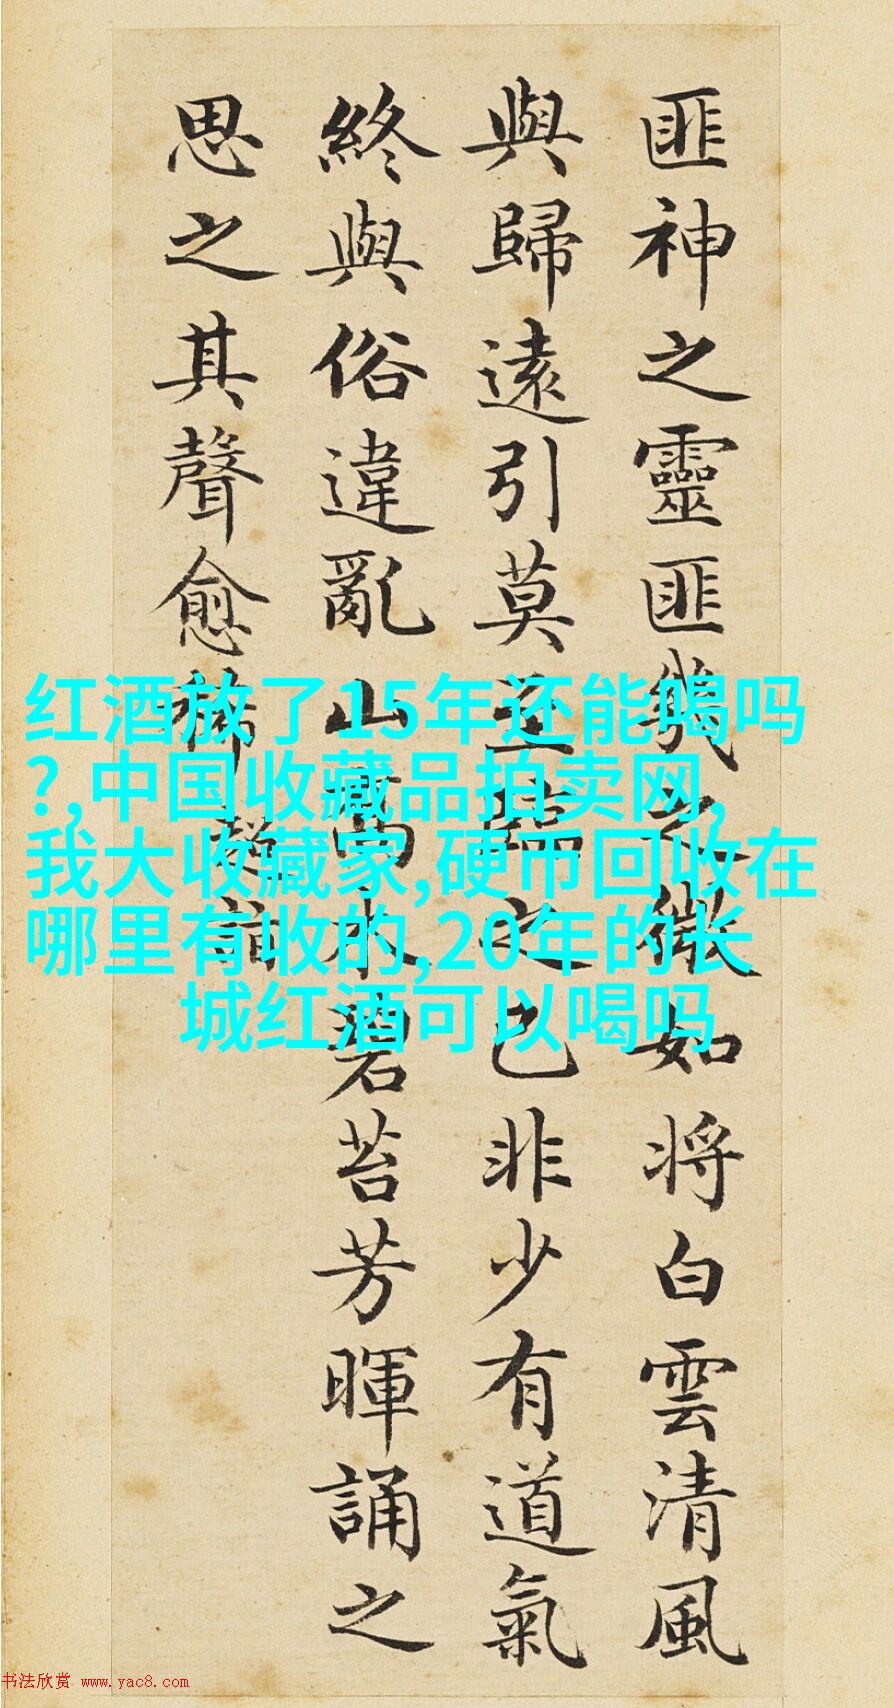 匪神之靈匪幾之微如將白雲清風
與歸遠引莫至臨之已非少有道氣
終與俗違亂山喬木碧苔芳暉誦之
思之其聲愈稀
超詣
红酒放了15年还能喝吗
?,中国收藏品拍卖网,
我大收藏家,硬币回收在
哪里有收的,20年的长
城红酒可以喝吗
书法欣赏 www.yac8.com